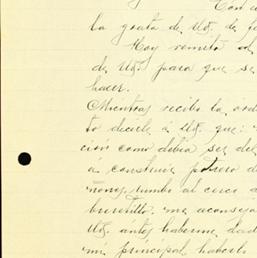 Con
la grata de Ud. de fe
Hoy remito
de Ud. para que se
hacer.
Mientras recibo la órde
to decirle á Ud. que:
cion como debia ser del
á construir potrero d
nony, tumbo al cerco
me aconseja
Ud. ántes haberme dad
mi principal, haberlo